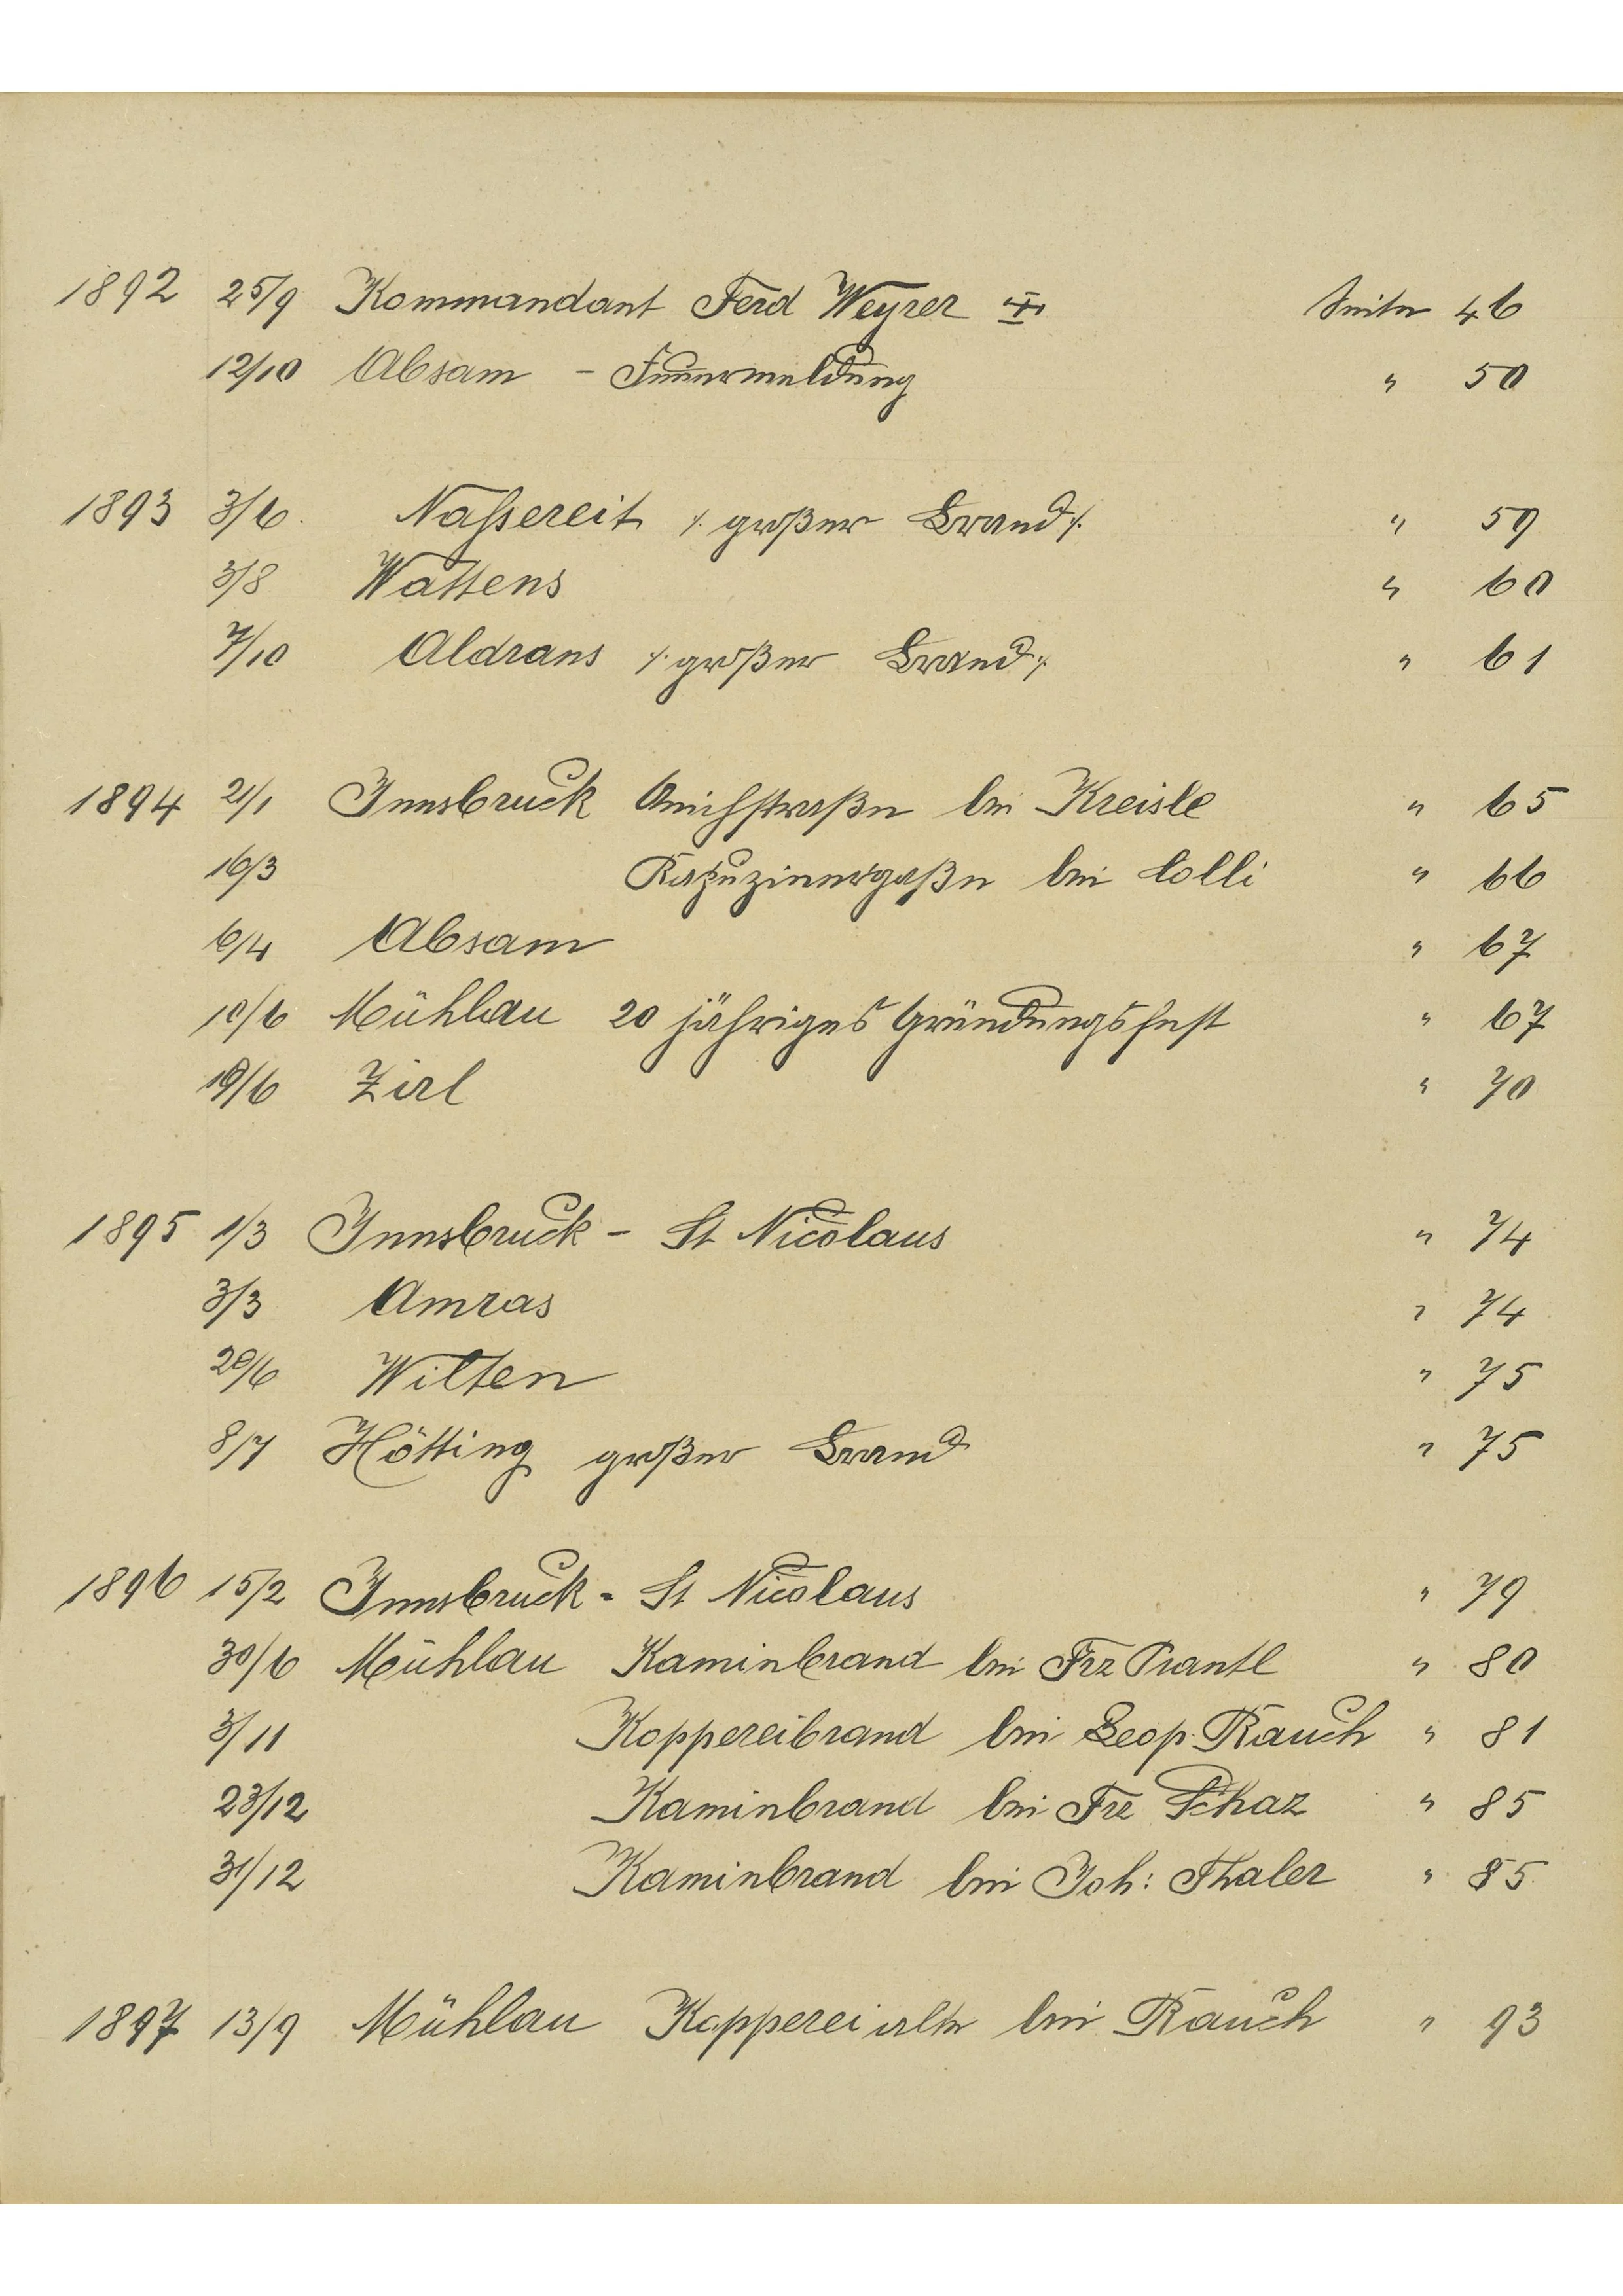 1892 25/9 Kommandant Ferd Weyrer ✝ Seite 46
12/10 Absam - Feuermeldung " 50
1893 3/6. Naßereit ./. großer Brand ./. " 59
3/8 Wattens " 60
7/10 Aldrans ./. großer Brand ./. " 61
1894 2/1 Innsbruck Anichstraße bei Kreisle " 65
16/3 Kapuzinergaße bei Colli " 66
6/4 Absam " 67
10/6 Mühlau 20 jähriges Gründungsfest " 67
19/6 Zirl " 70
1895 1/3 Innsbruck - St Nicolaus " 74
3/3 Amras " 74
20/6 Wilten " 75
8/7 Hötting großer Brand " 75
1896 15/2 Innsbruck - St Nicolaus " 79
30/6 Mühlau Kaminbrand bei Frz Prantl " 80
3/11 Koppereibrand bei Leop. Rauch " 81
23/12 Kaminbrand bei Frz Schaz " 85
31/12 Kaminbrand bei Joh: Thaler " 85
1897 13/9 Mühlau Kopperei alte bei Rauch " 93